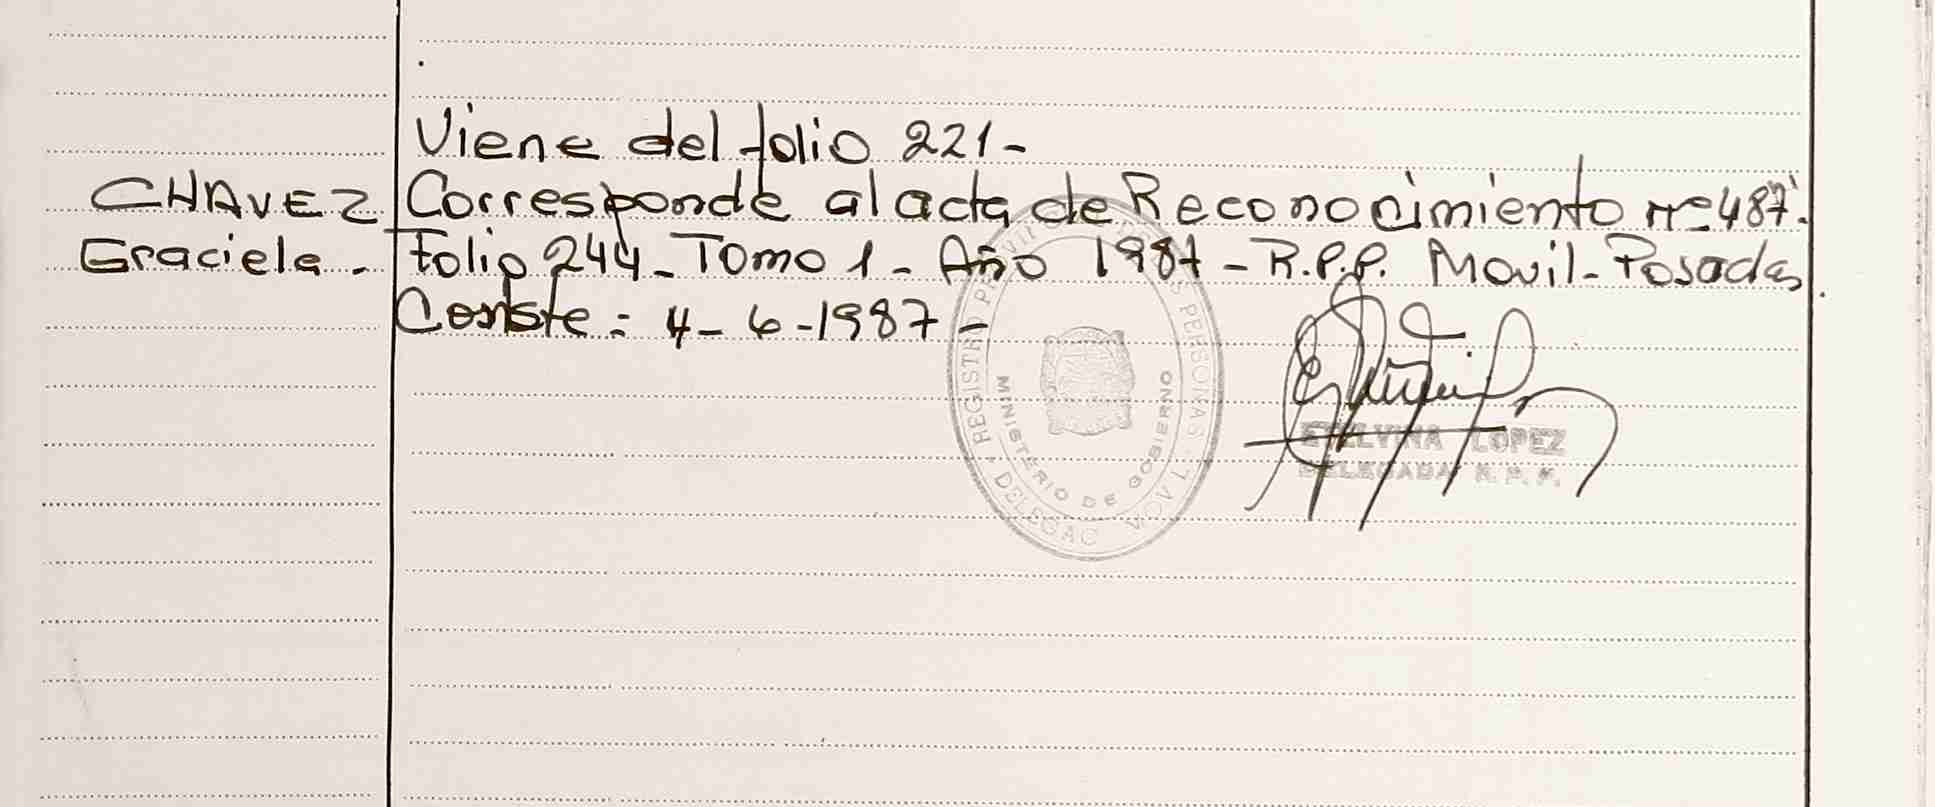 Viene del folio 221-
CHAVEZ Corresponde al acta de Reconocimiento nº 487.
Graciela - Folio 244 - Tomo 1 - Año 1987 - R.P.P. Movil - Posadas.
Conste: 4-6-1987-
REGISTRO PROVINCIAL DE LAS PERSONAS
DELEGAC MOVIL
MINISTERIO DE GOBIERNO
ETELVINA LOPEZ
DELEGADA R. P. P.